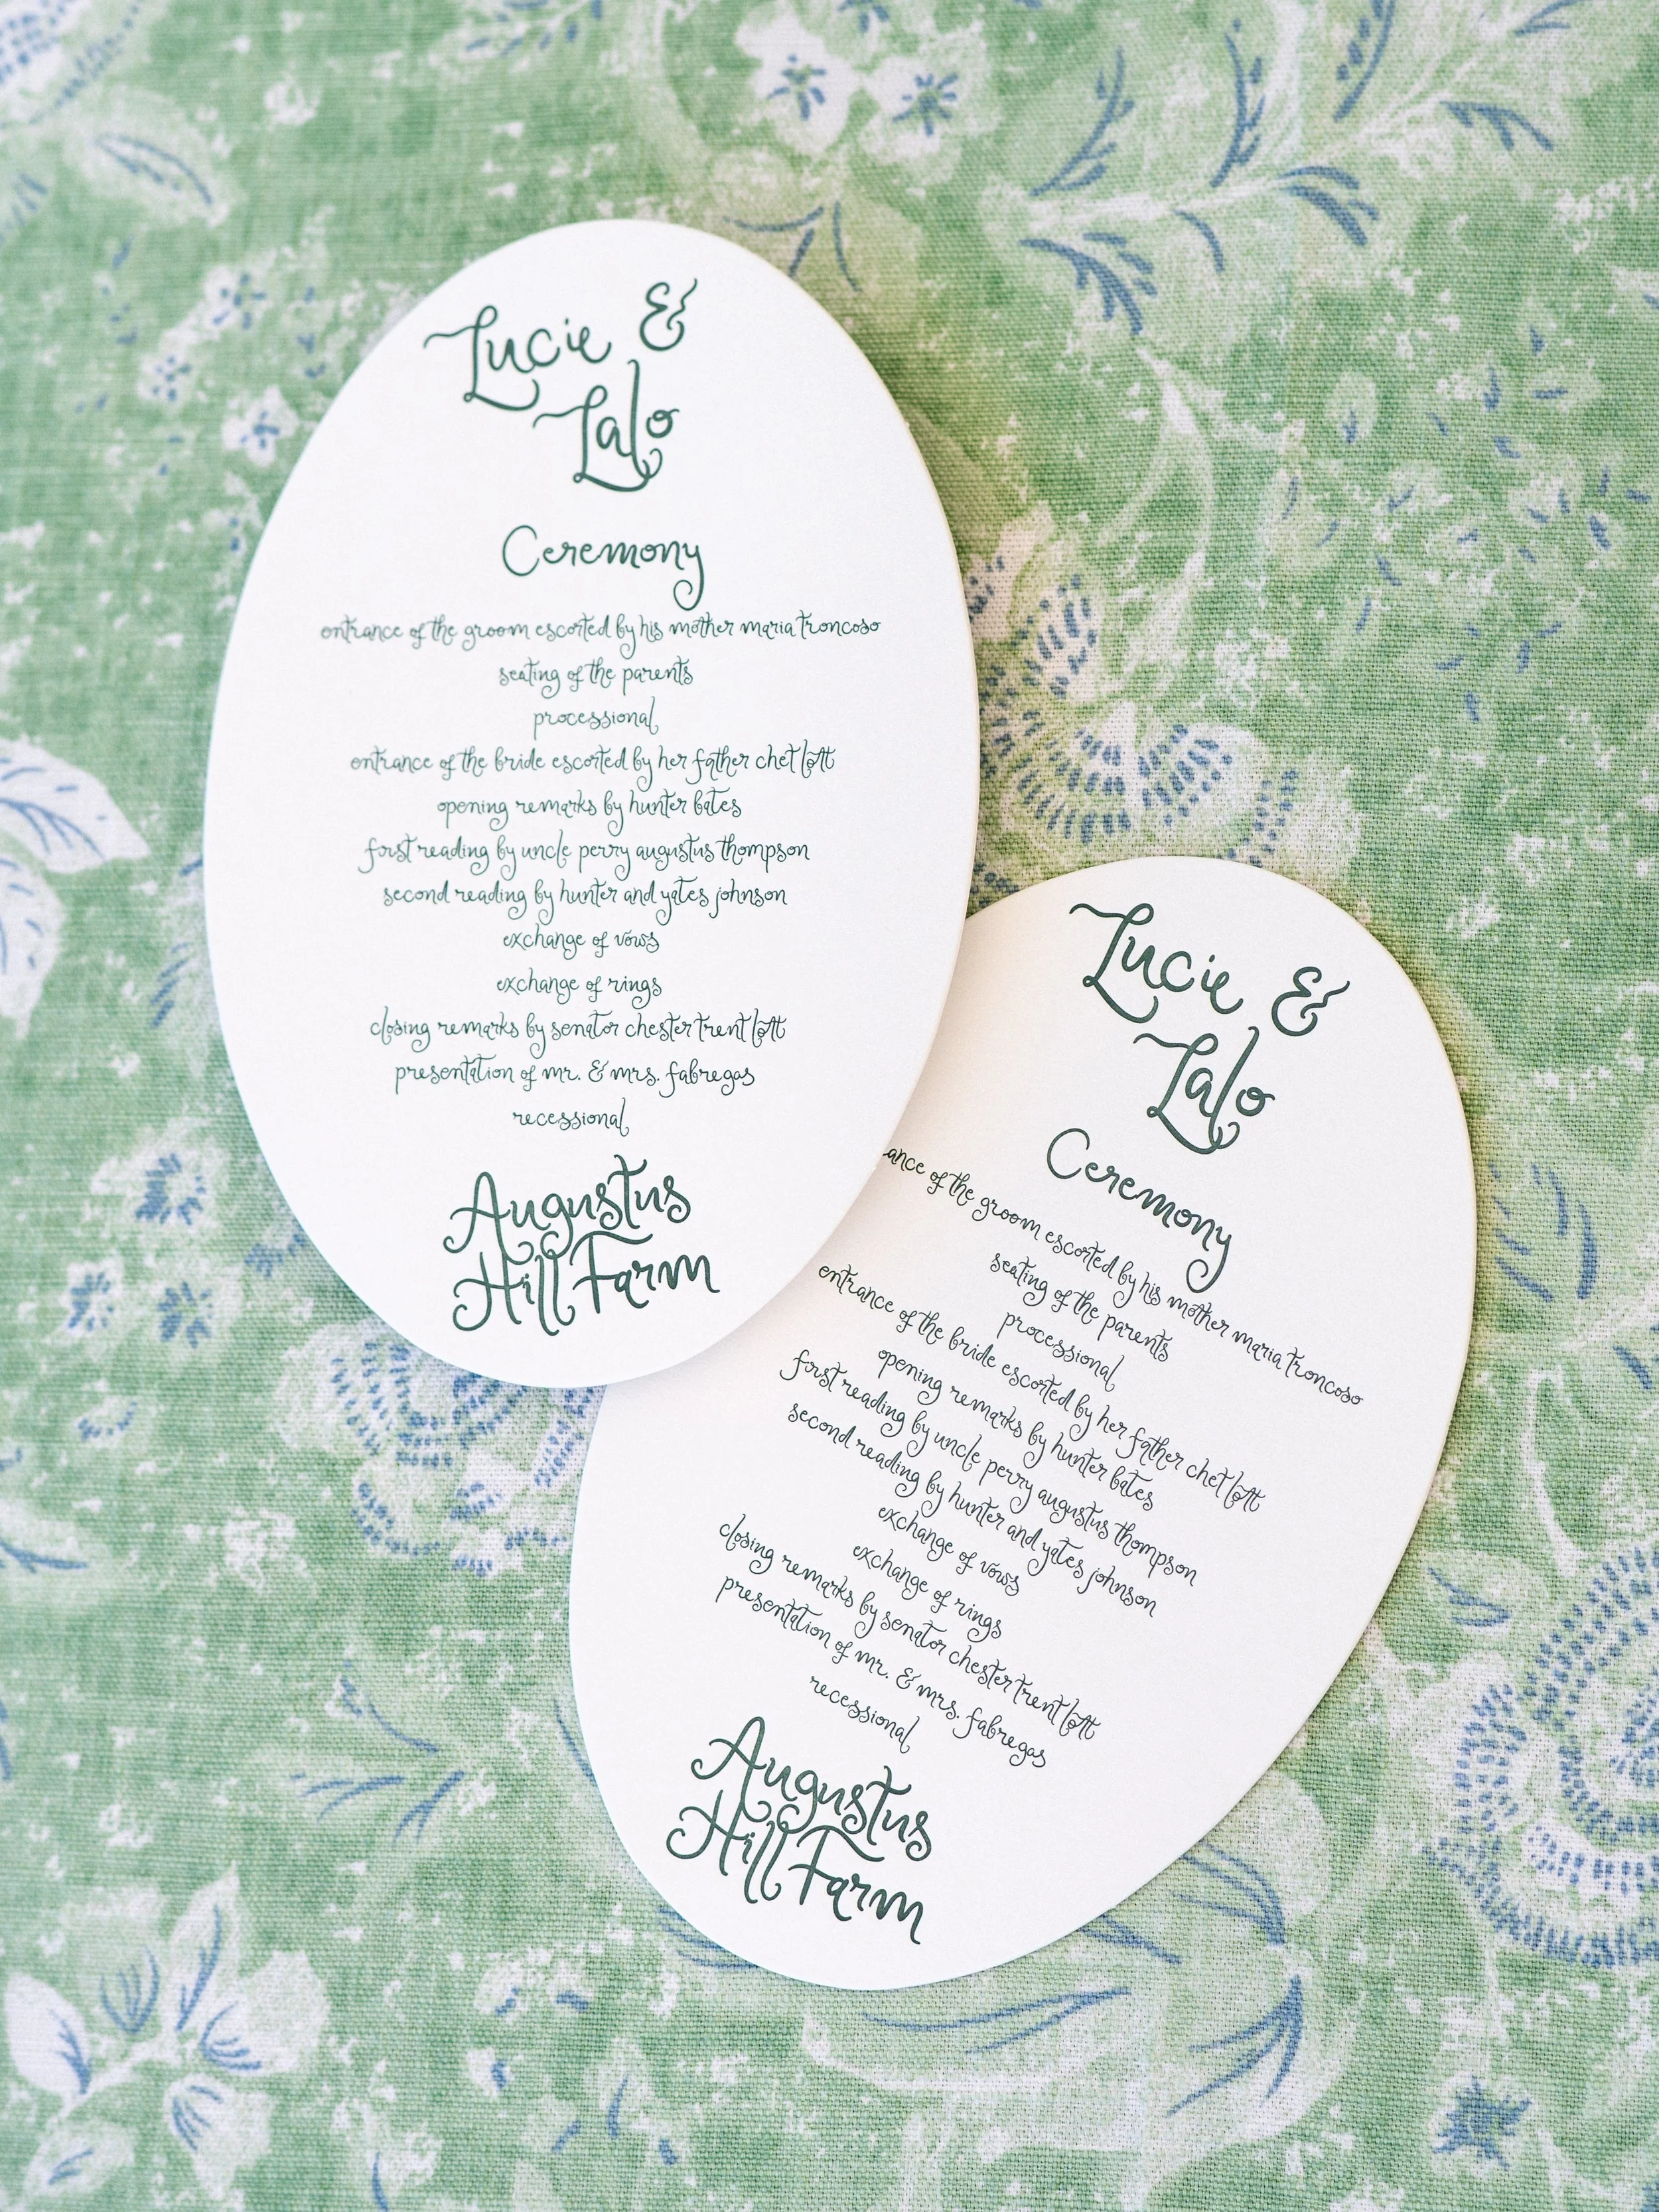 Lucie &
Lalo
Ceremony
entrance of the groom escorted by his mother maria troncoso
seating of the parents
processional
entrance of the bride escorted by her father chet lott
opening remarks by hunter bates
first reading by uncle perry augustus thompson
second reading by hunter and yates johnson
exchange of vows
exchange of rings
closing remarks by senator chester trent lott
presentation of mr. & mrs. fabregas
recessional
Augustus
Hill Farm
Lucie &
Lalo
Ceremony
ance of the groom escorted by his mother maria troncoso
seating of the parents
processional
entrance of the bride escorted by her father chet lott
opening remarks by hunter bates
first reading by uncle perry augustus thompson
second reading by hunter and yates johnson
exchange of vows
exchange of rings
closing remarks by senator chester trent lott
presentation of mr. & mrs. fabregas
recessional
Augustus
Hill Farm